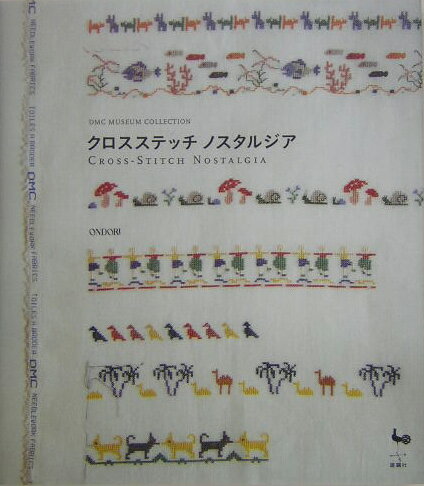 DMC MUSEUM COLLECTION
クロスステッチ ノスタルジア
CROSS-STITCH NOSTALGIA
ONDORI
雄鷄社
MC NEEDLEWORK FABRICS TOILES A BRODER DMC NEEDLEWORK FABRICS TOILES A BRODER DMC NEEDLEWORK FABRICS